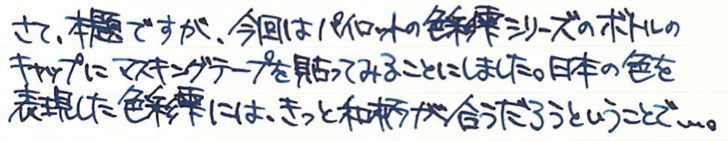 さて、本題ですが、今回はパイロットの色彩雫シリーズのボトルの
キャップにマスキングテープを貼ってみることにしました。日本の色を
表現した色彩雫には、きっと和柄が合うだろうということで…。